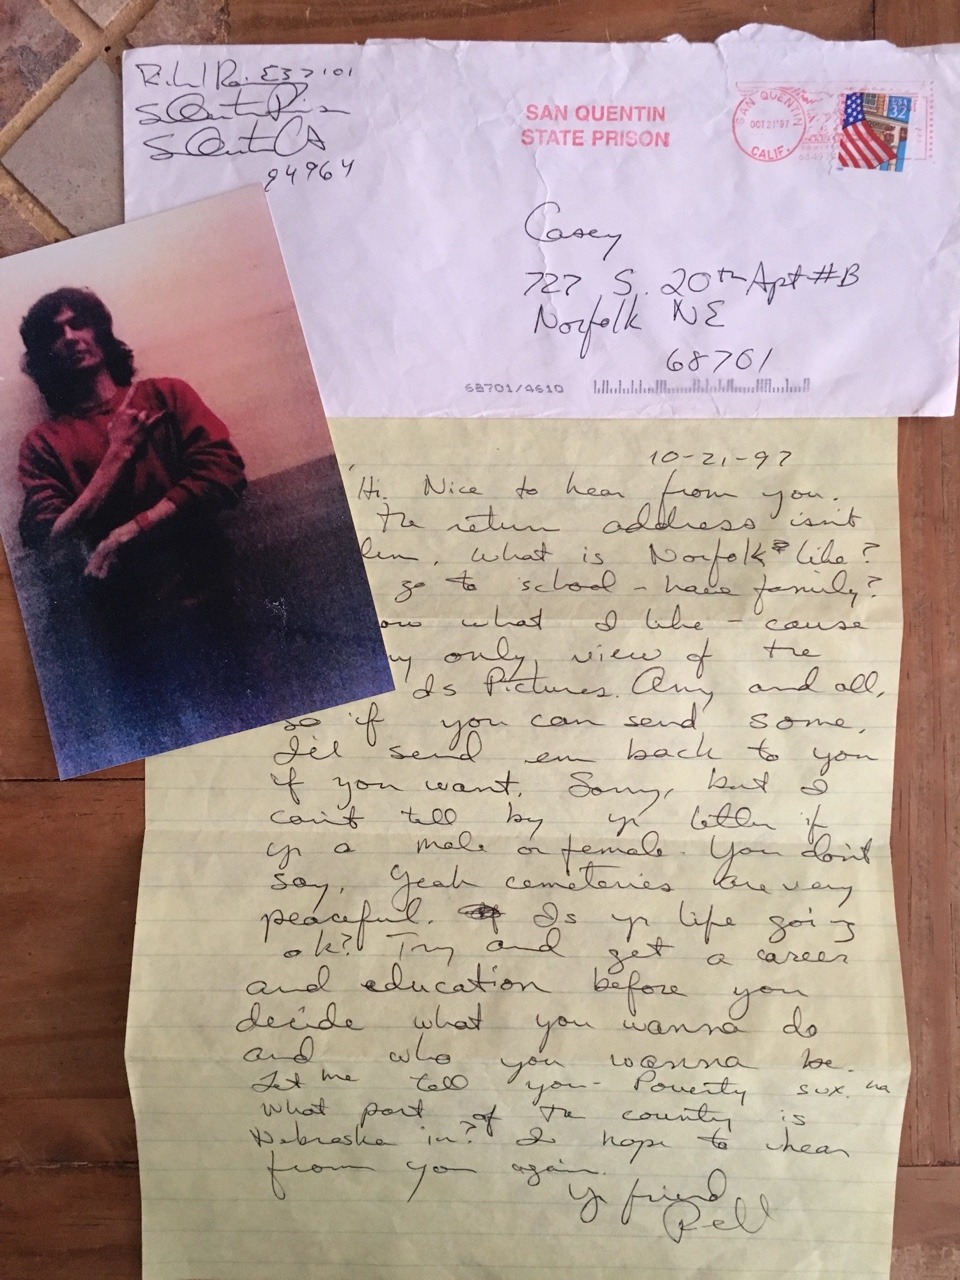 E37101
94964
SAN QUENTIN
STATE PRISON
SAN QUENTIN
OCT 21 '97
CALIF.
USA
32
Casey
727 S. 20th Apt #B
Norfolk NE
68701
68701/4610
10-21-97
Hi. Nice to hear from you.
The return address isn't
lem. What is Norfolk like?
go to school - have family?
ow what I like - cause
y only view of the
ds Pictures. Any and all,
so if you can send some,
I'll send em back to you
if you want. Sorry, but I
can't tell by yr letter if
yr a male or female. You don't
say. Yeah cemeteries are very
peaceful. Is yr life going
ok? Try and get a career
and education before you
decide what you wanna do
and who you wanna be.
Let me tell you - Poverty sux. ha
what part of the country is
Nebraska in? I hope to hear
from you again.
Yr friend